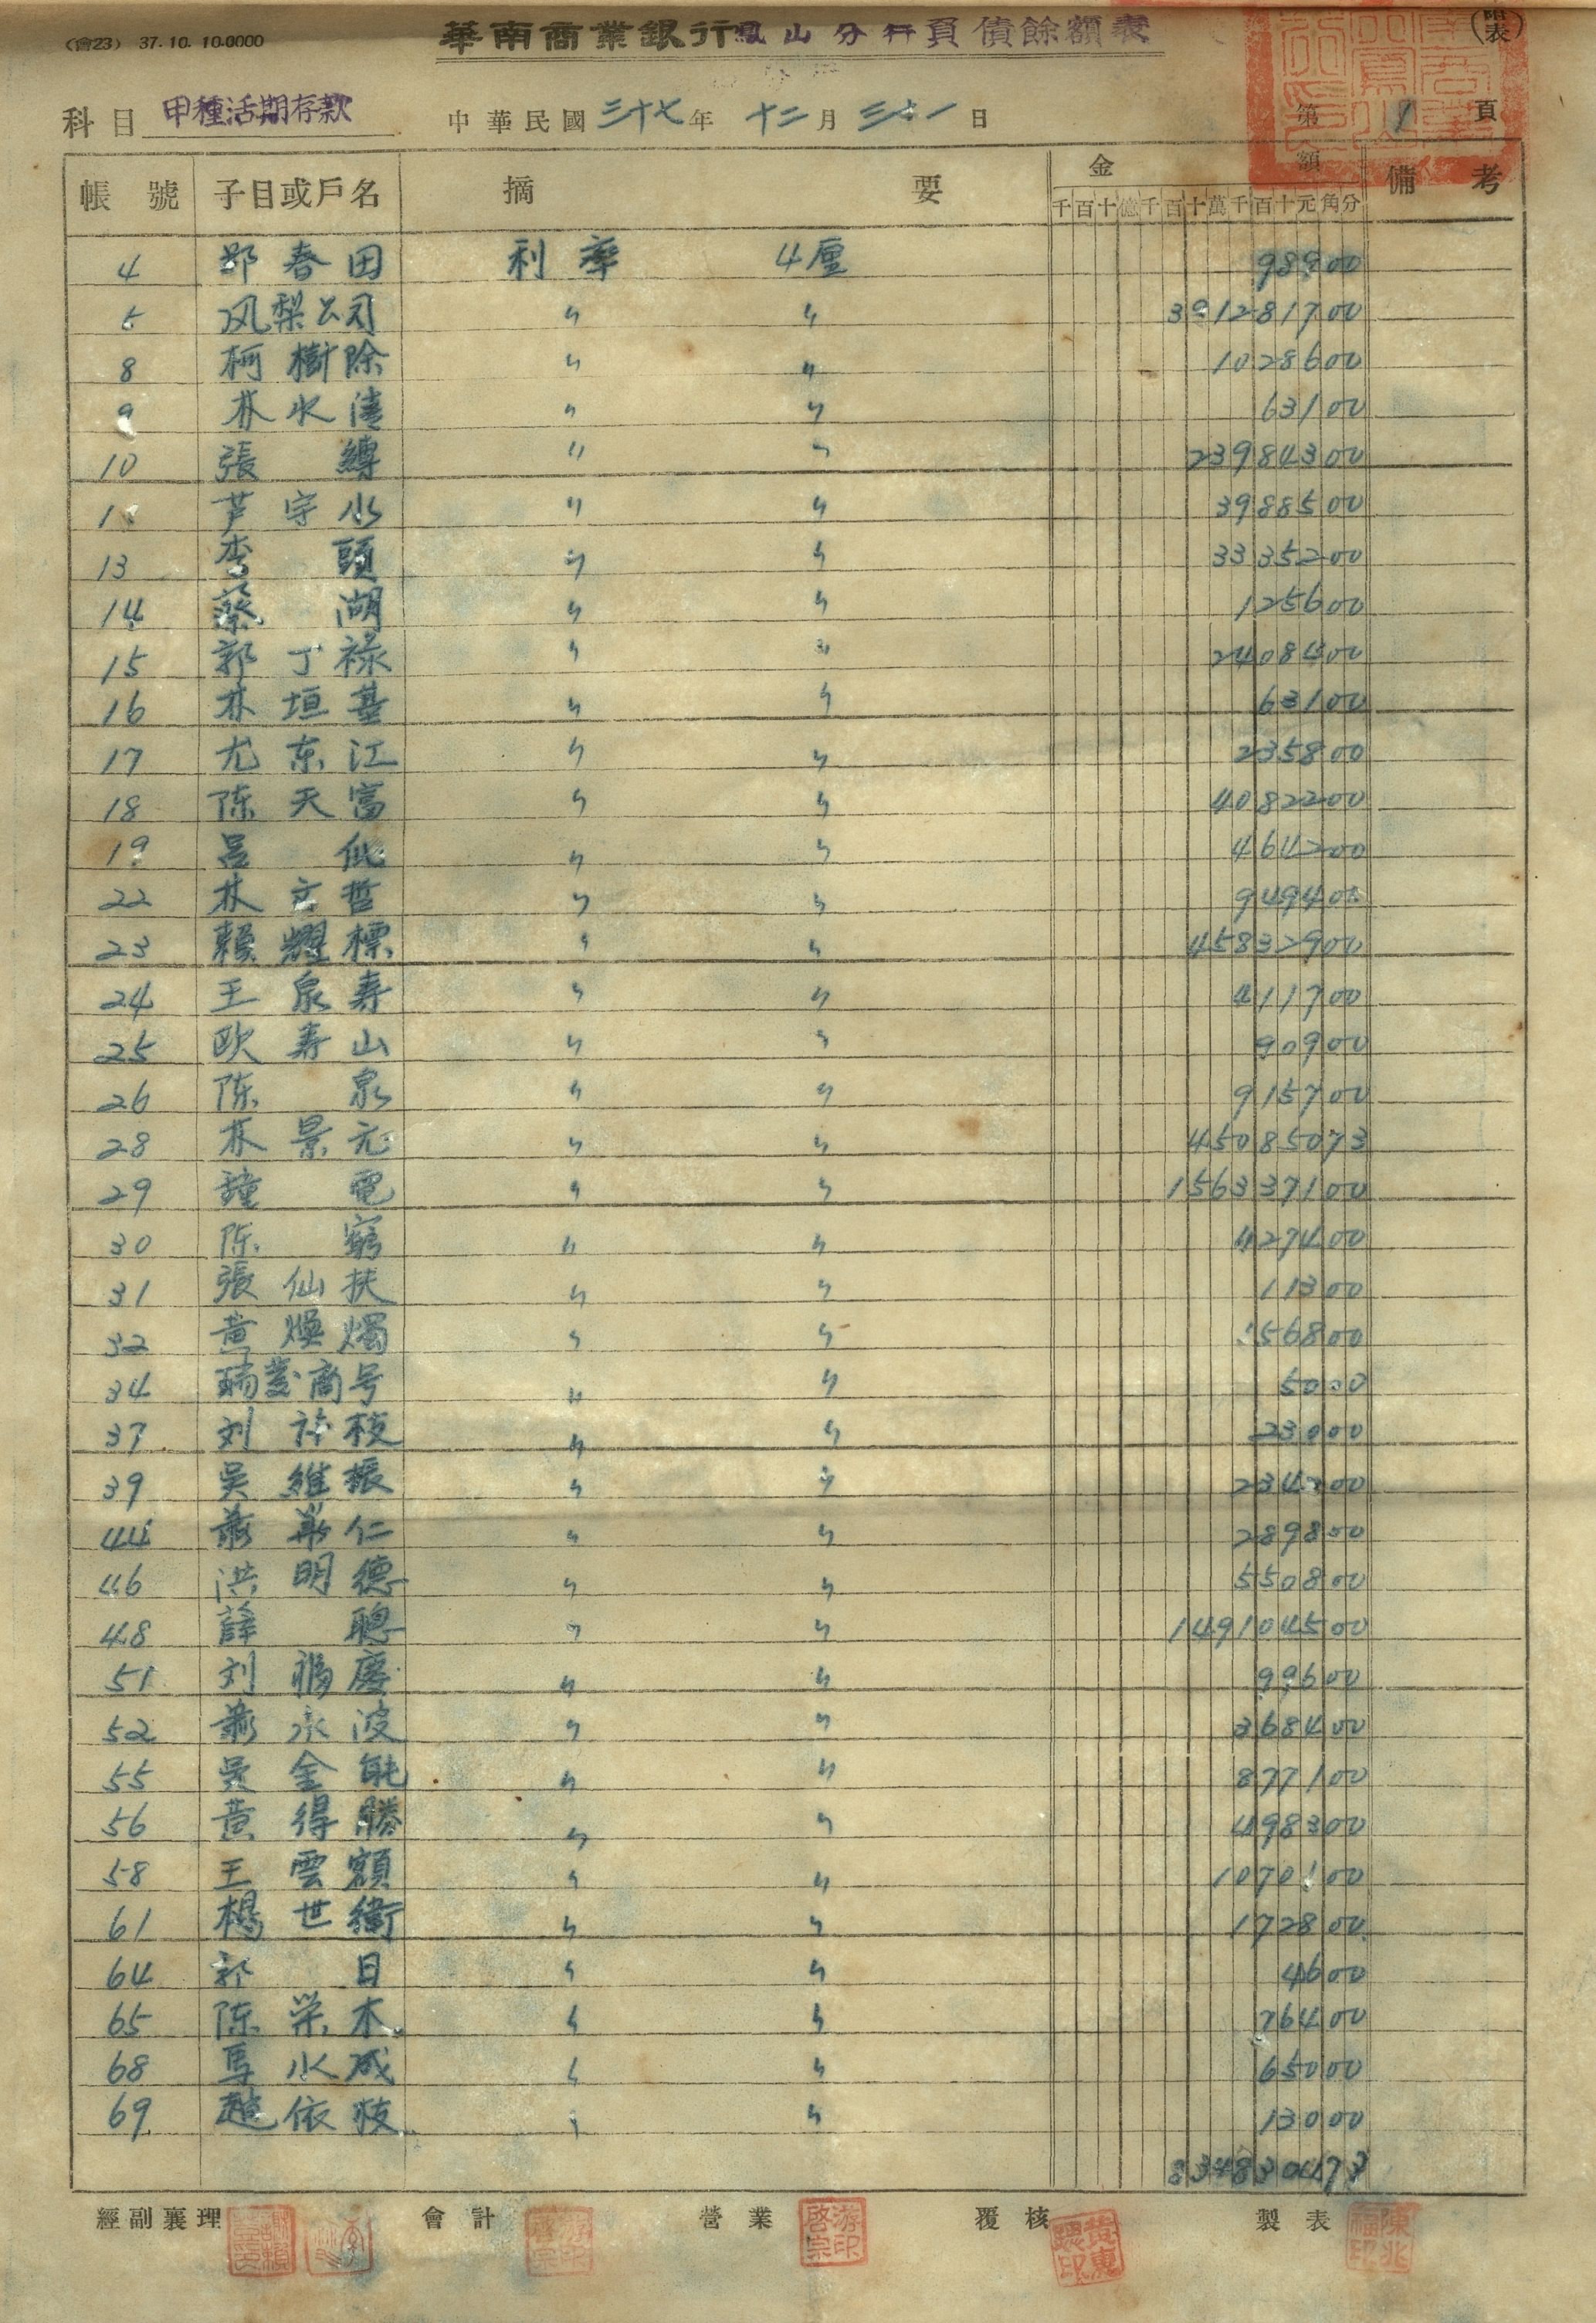 (會23) 37.10.10.0000
華南商業銀行鳳山分行負債餘額表
(附表)
科目 甲種活期存款 中華民國三十七年十二月三十一日 第1頁
帳號 子目或戶名 摘要 金額 備考
千百十億千百十萬千百十元角分
4 鄭春田 利率 4厘 98900
5 凤梨公司 〃 〃 391281700
8 柯樹除 〃 〃 1028600
9 林水清 〃 〃 63100
10 張縛 〃 〃 23984300
芦宇水 〃 〃 3988500
13 李頭 〃 〃 3335200
14 蔡湖 〃 〃 125600
15 郭丁祿 〃 〃 2408400
16 林垣基 〃 〃 63100
17 尤东江 〃 〃 235800
18 陈天富 〃 〃 4082200
19 呂 〃 〃 464200
22 林文哲 〃 〃 949400
23 賴耀標 〃 〃 45832900
24 王泉寿 〃 〃 411700
25 欧寿山 〃 〃 90900
26 陈泉 〃 〃 915700
28 林景元 〃 〃 45085073
29 鐘電 〃 〃 156337100
30 陈窮 〃 〃 427400
31 張仙扶 〃 〃 11300
32 黄煥燭 〃 〃 156800
34 瑞菱商号 〃 〃 5000
37 刘枝 〃 〃 23000
39 吳維振 〃 〃 234200
44 仁 〃 〃 289800
46 洪明德 〃 〃 550800
48 薛聰 〃 〃 149104500
51 刘福慶 〃 〃 99600
52 永波 〃 〃 368400
55 吳金能 〃 〃 877100
56 黄得勝 〃 〃 498300
58 王雲額 〃 〃 1070100
61 楊世衛 〃 〃 172800
64 郭日 〃 〃 4600
65 陈栄木 〃 〃 76400
68 馬水成 〃 〃 65000
69 趙依枝 〃 〃 13000
834830473
經副襄理 會計 營業 游啓宗印 覆核 製表 陳兆福印